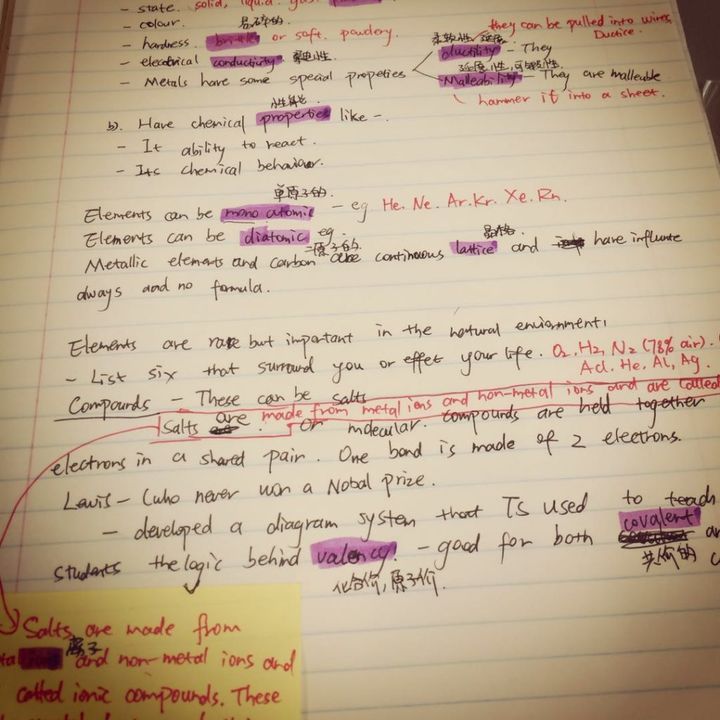 - state. solid, liquid. gas.
- colour. 易碎的
- hardness. brittle or soft. powdery.
- elecdrical conductivity. 导电性
- Metals have some special propeties
柔软性 延展
they can be pulled into wires
Ductice.
ductility - They
延展性, 可锻性.
Malleability - They are malleable
hammer it into a sheet.
性能
b). Have chemical properties like -.
- It ability to react.
- Its chemical behaviour.
单原子的.
Elements can be mono atomic - eg He. Ne. Ar. Kr. Xe. Rn.
Elements can be diatomic eg.
二原子的 晶格.
Metallic elements and carbon are continuous lattice and have influnte
always and no formula.
Elements are rare but important in the natural enviornment,
- List six that surround you or effet your life. O2, H2, N2 (78% air).
Acl. He, Al, Ag.
Compounds - These can be salts
Salts are made from metal ions and non-metal ions and are called
or molecular. compounds are held together
electrons in a shared pair. One bond is made of 2 electrons.
Lewis - (who never won a Nobal prize.
- developed a diagram system that Is used to teach
students the logic behind valency! - good for both covalent
化合价, 原子价. 共价的
Salts are made from
and non-metal ions and
called ionic compounds. These